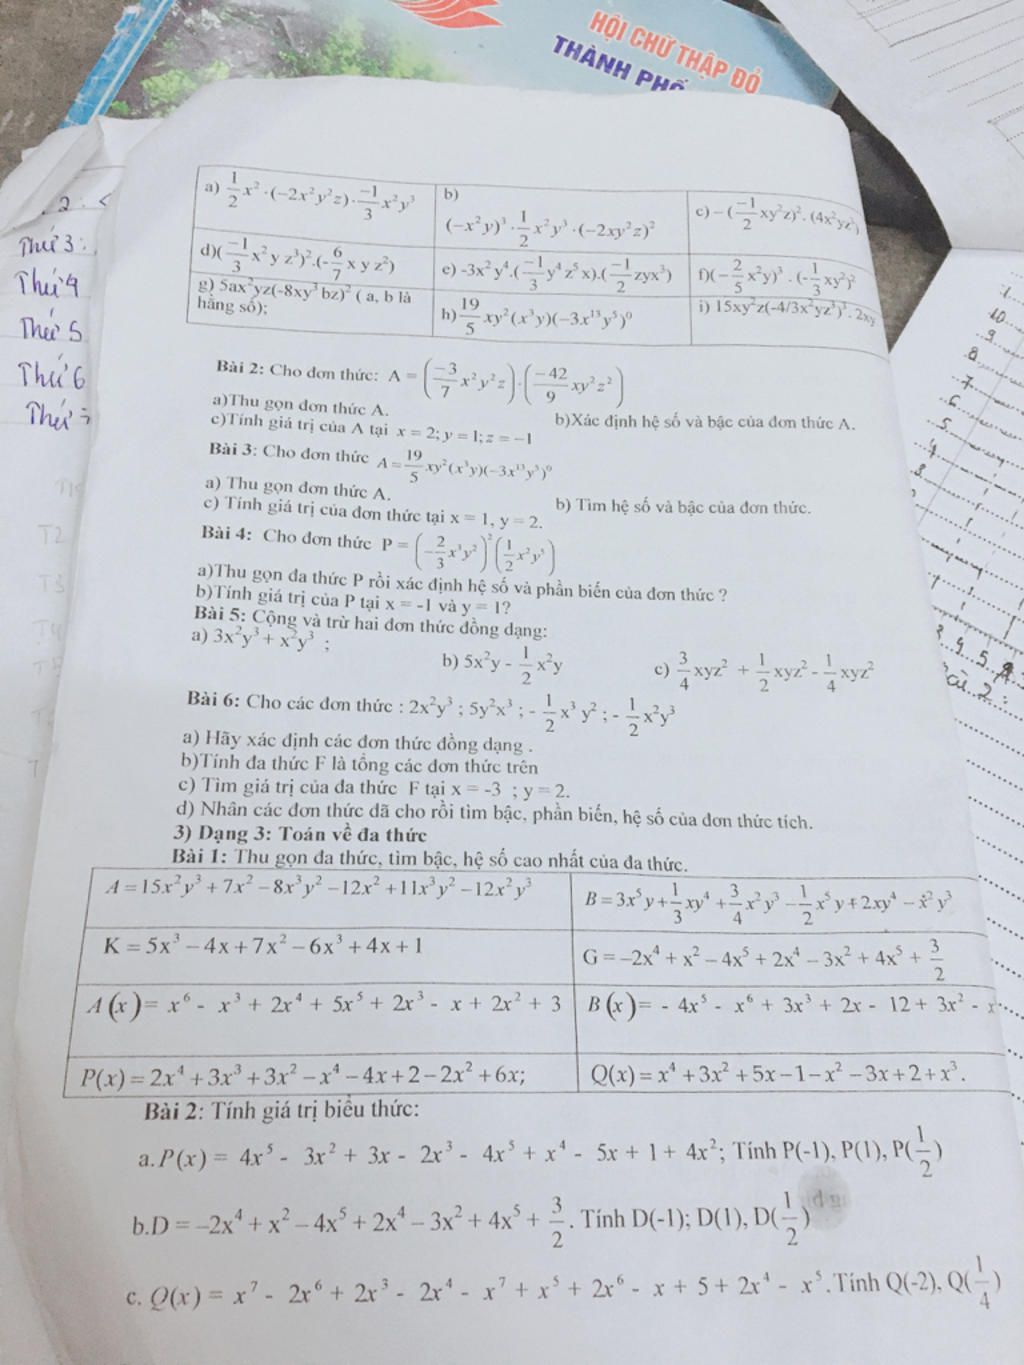 HỘI CHỮ THẬP ĐỎ
THÀNH PHỐ
2: <
Thứ 3:
Thứ 4
Thứ 5
Thứ 6
Thứ 7
T2
T3
T4
a) \frac{1}{2}x²·(−2x²y²z)·\frac{−1}{3}x²y³
b)
(−x²y)³·\frac{1}{2}x²y³·(−2xy²z)²
c) −(\frac{−1}{2}xy²z)².(4x²yz³)
d)(\frac{−1}{3}x²y z³)².(-\frac{6}{7}x y z²)
e) -3x²y⁴.(\frac{−1}{3}y⁴z⁵x).(\frac{−1}{2}zyx³)
f)(−\frac{2}{5}x²y)³.(-\frac{1}{3}xy²)²
g) 5ax²yz(-8xy³bz)² ( a, b là
hằng số);
h)\frac{19}{5}xy²(x³y)(−3x¹³y⁵)⁰
i) 15xy²z(-4/3x²yz³)³. 2xy
Bài 2: Cho đơn thức: A = (\frac{−3}{7}x²y²z)·(\frac{−42}{9}xy²z²)
a)Thu gọn đơn thức A.
b)Xác định hệ số và bậc của đơn thức A.
c)Tính giá trị của A tại x = 2; y = 1; z = −1
Bài 3: Cho đơn thức A = \frac{19}{5}xy²(x³y)(−3x¹³y⁵)⁰
a) Thu gọn đơn thức A.
b) Tìm hệ số và bậc của đơn thức.
c) Tính giá trị của đơn thức tại x = 1, y = 2.
Bài 4: Cho đơn thức P = (−\frac{2}{3}x³y²)²(\frac{1}{2}x²y⁵)
a)Thu gọn đa thức P rồi xác định hệ số và phần biến của đơn thức ?
b)Tính giá trị của P tại x = -1 và y = 1?
Bài 5: Cộng và trừ hai đơn thức đồng dạng:
a) 3x²y³ + x²y³ ;
b) 5x²y - \frac{1}{2}x²y
c) \frac{3}{4}xyz² + \frac{1}{2}xyz² - \frac{1}{4}xyz²
Bài 6: Cho các đơn thức : 2x²y³ ; 5y²x³ ; - \frac{1}{2}x³ y² ; - \frac{1}{2}x²y³
a) Hãy xác định các đơn thức đồng dạng .
b)Tính đa thức F là tổng các đơn thức trên
c) Tìm giá trị của đa thức F tại x = -3 ; y = 2.
d) Nhân các đơn thức đã cho rồi tìm bậc, phần biến, hệ số của đơn thức tích.
3) Dạng 3: Toán về đa thức
Bài 1: Thu gọn đa thức, tìm bậc, hệ số cao nhất của đa thức.
A = 15x²y³ + 7x² − 8x³y² − 12x² + 11x³y² − 12x²y³
B = 3x⁵y + \frac{1}{3}xy⁴ + \frac{3}{4}x²y³ − \frac{1}{2}x⁵y + 2xy⁴ − x²y³
K = 5x³ − 4x + 7x² − 6x³ + 4x + 1
G = −2x⁴ + x² − 4x⁵ + 2x⁴ − 3x² + 4x⁵ + \frac{3}{2}
A(x) = x⁶ - x³ + 2x⁴ + 5x⁵ + 2x³ - x + 2x² + 3
B(x) = - 4x⁵ - x⁶ + 3x³ + 2x - 12 + 3x² - x
P(x) = 2x⁴ + 3x³ + 3x² − x⁴ − 4x + 2 − 2x² + 6x;
Q(x) = x⁴ + 3x² + 5x − 1 − x² − 3x + 2 + x³.
Bài 2: Tính giá trị biểu thức:
a.P(x) = 4x⁵ - 3x² + 3x - 2x³ - 4x⁵ + x⁴ - 5x + 1 + 4x²; Tính P(-1), P(1), P(\frac{1}{2})
b.D = −2x⁴ + x² − 4x⁵ + 2x⁴ − 3x² + 4x⁵ + \frac{3}{2}. Tính D(-1); D(1), D(\frac{1}{2})
c. Q(x) = x⁷ - 2x⁶ + 2x³ - 2x⁴ - x⁷ + x⁵ + 2x⁶ - x + 5 + 2x⁴ - x⁵.Tính Q(-2), Q(\frac{1}{4})